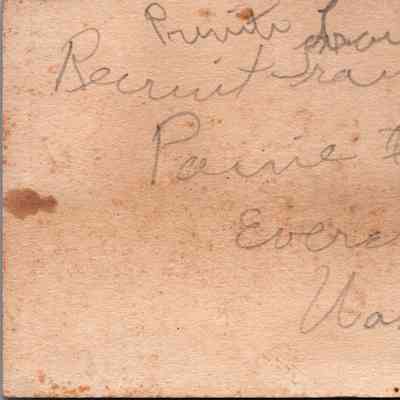 Private Lou
Recruit Trai
Paine F
Evere
Was